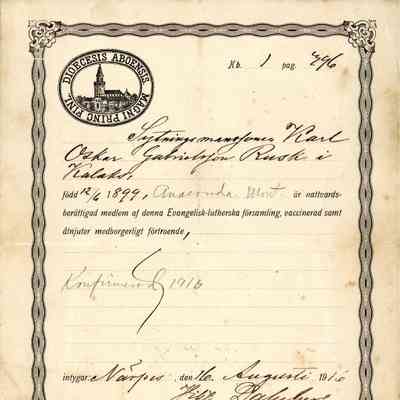 DIOECESIS ABOENSIS
MAGNI PRINC. FINL.
Kb. 1 pag. 496
Sytningsmanssonen Karl
Oskar Gabrielsson Rusk i
Kalaks
född 12/6 1899, Anaconda Mont. är nattvards-
berättigad medlem af denna Evangelisk-lutherska församling, vaccinerad samt
åtnjuter medborgerligt förtroende,
Konfirmerad 1916
intygar: Närpes, den 16 Augusti 1916